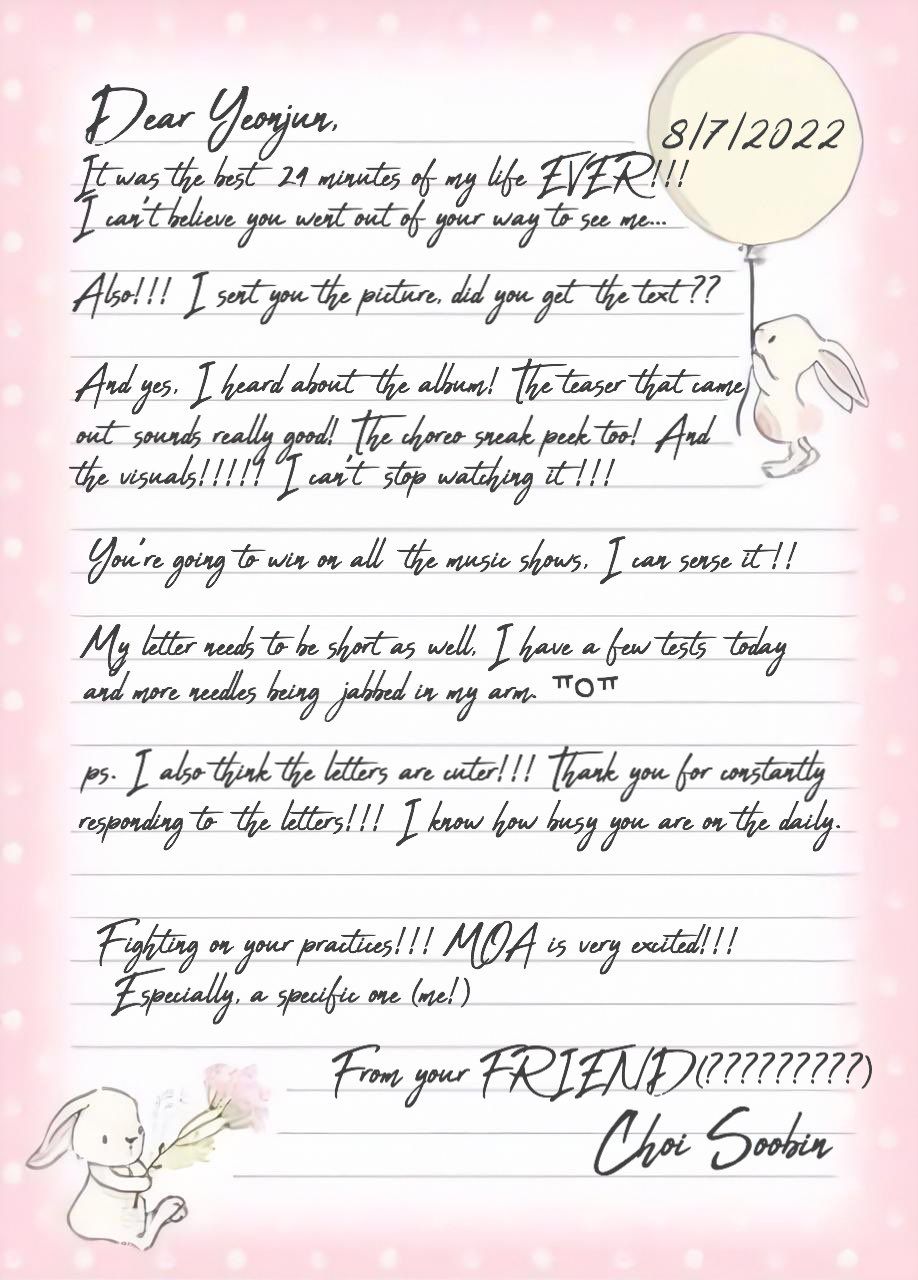 8/7/2022
Dear Yeonjun,
It was the best 29 minutes of my life EVER!!!
I can't believe you went out of your way to see me...
Also!!! I sent you the picture, did you get the text??
And yes, I heard about the album! The teaser that came
out sounds really good! The choreo sneak peek too! And
the visuals!!!!! I can't stop watching it!!!
You're going to win on all the music shows, I can sense it!!
My letter needs to be short as well, I have a few tests today
and more needles being jabbed in my arm. ㅠㅇㅠ
ps. I also think the letters are cuter!!! Thank you for constantly
responding to the letters!!! I know how busy you are on the daily.
Fighting on your practices!!! MOA is very excited!!!
Especially, a specific one (me!)
From your FRIEND(?????????)
Choi Soobin